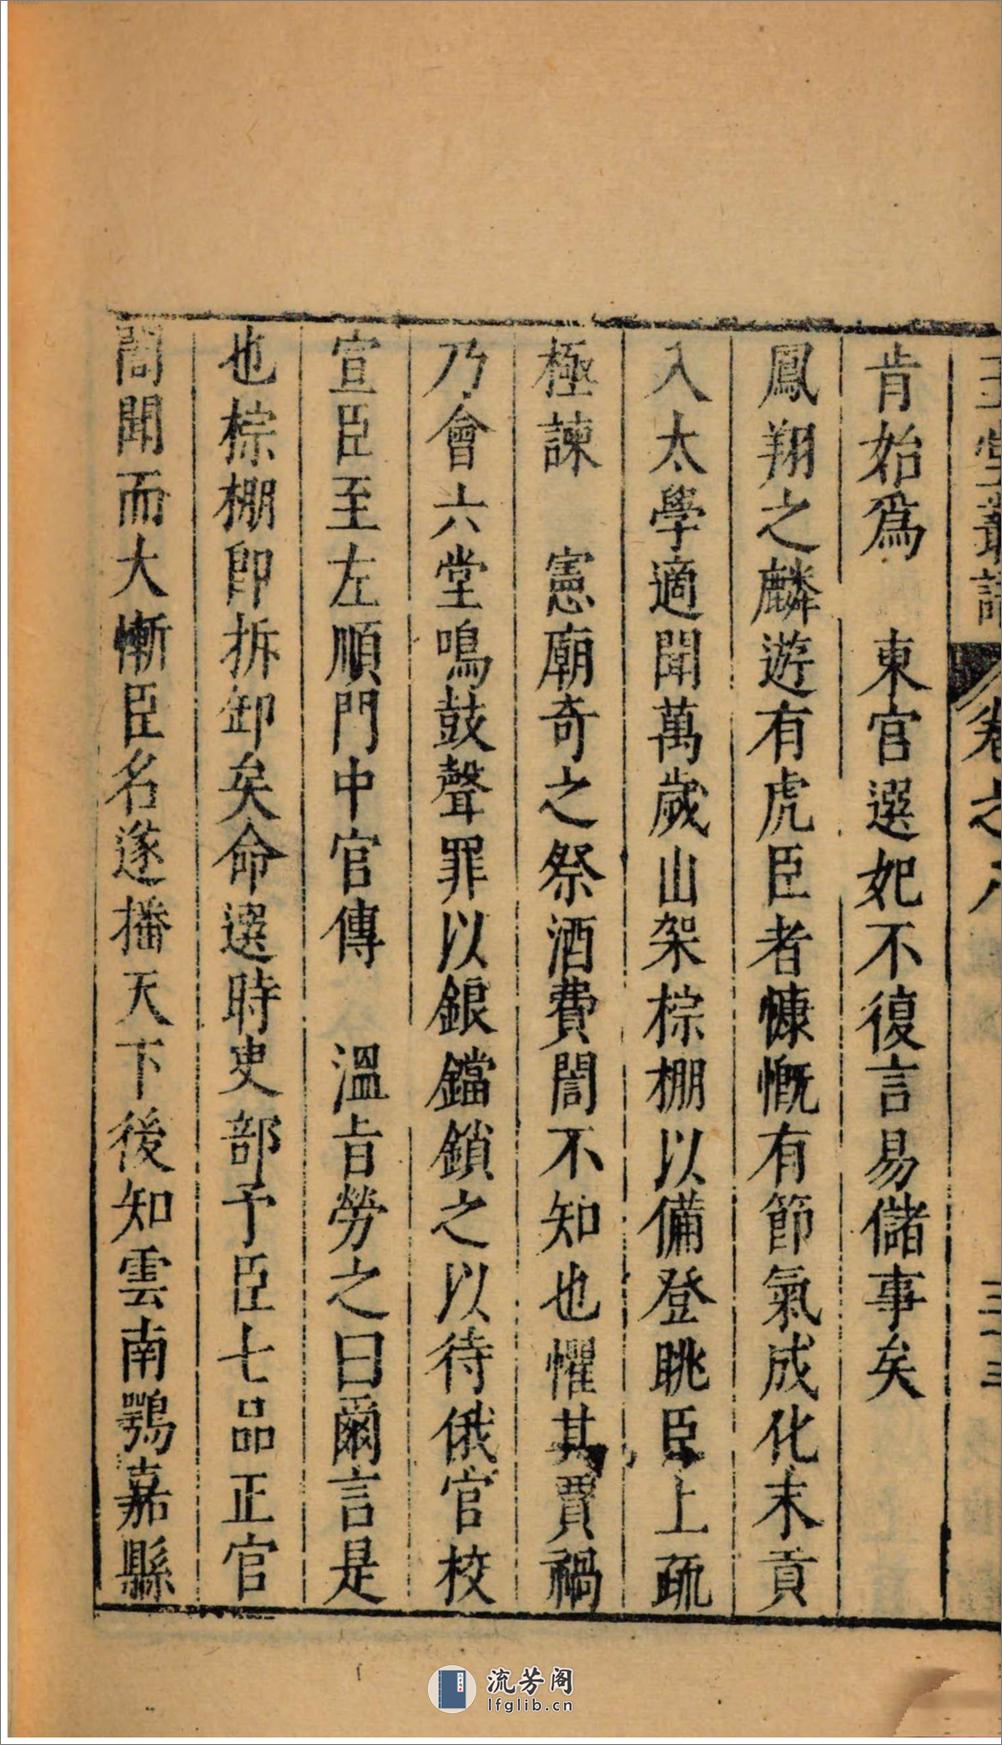 玉堂叢語 卷之八
肯始爲 東官選妃不復言易儲事矣
鳳翔之麟遊有虎臣者慷慨有節氣成化末貢
入太學適聞萬歲山架棕棚以備登眺臣上疏
極諫 憲廟奇之祭酒費誾不知也懼其賈禍
乃會六堂鳴鼓聲罪以鋃鐺鎖之以待俄官校
宣臣至左順門中官傳 溫旨勞之曰爾言是
也棕棚卽拆卸矣命選時吏部予臣七品正官
誾聞而大慚臣名遂播天下後知雲南鶚嘉縣
流芳阁
lfglib.cn